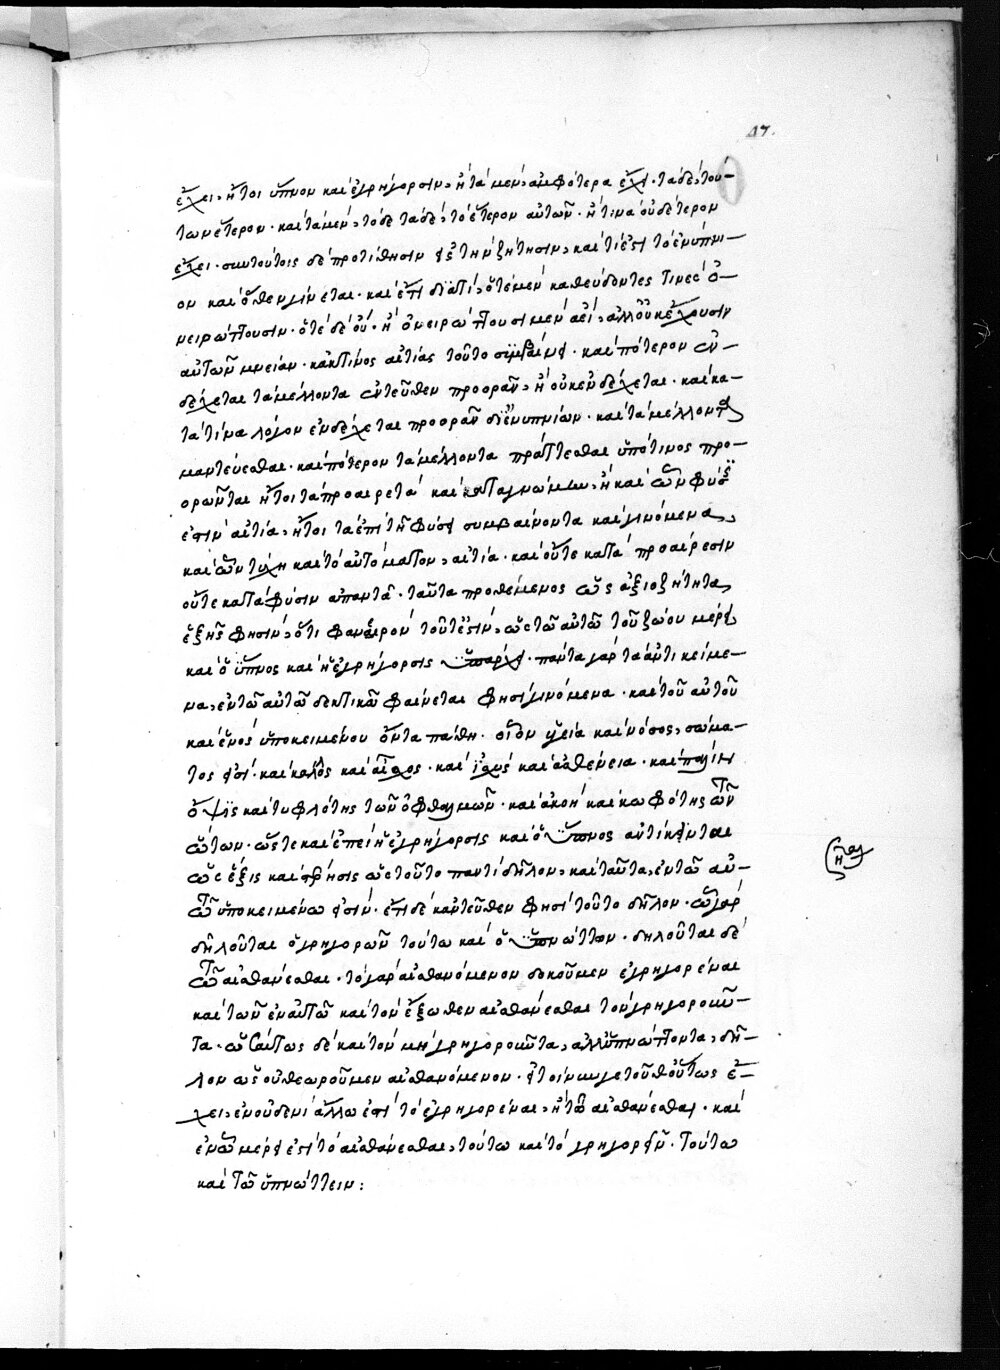 47.
ἔχει, ἤτοι ὕπνον καὶ ἐγρήγορσιν, ἢ τὰ μὲν, ἀμφότερα ἔχει. τὰ δὲ, τού-
των ἕτερον. καὶ τὰ μὲν, τόδε τὰ δὲ, τὸ ἕτερον αὐτῶν. ἤ τινα οὐδέτερον
ἔχει. σὺν τούτοις δὲ προτίθησιν εἰς τὴν ζήτησιν, καὶ τί ἐστι τὸ ἐνύπνι-
ον καὶ ὅθεν γίνεται. καὶ ἔτι διατί, ὁτὲ μὲν καθεύδοντές τινες ὀ-
νειρώττουσιν. ὁτὲ δὲ οὔ. ἢ ὀνειρώττουσι μὲν ἀεί, ἀλλ' οὐκ ἔχουσιν
αὐτῶν μνείαν. κἀκ τίνος αἰτίας τοῦτο συμβαίνει. καὶ πότερον ἐν-
δέχεται τὰ μέλλοντα ἐντεῦθεν προορᾶν, ἢ οὐκ ἐνδέχεται. καὶ κα-
τὰ τίνα λόγον ἐνδέχεται προορᾶν δι' ἐνυπνίων. καὶ τὰ μέλλοντα
μαντεύεσθαι. καὶ πότερον τὰ μέλλοντα πράττεσθαι ὑπό τινος προ-
ορῶνται ἤτοι τὰ προαιρετὰ καὶ κατὰ γνώμην, ἢ καὶ ὧν φύσις
ἐστὶν αἰτία, ἤτοι τὰ ἐπὶ τῇ φύσει συμβαίνοντα καὶ γινόμενα,
καὶ ὧν τύχη καὶ τὸ αὐτόματον, αἰτία. καὶ οὔτε κατὰ προαίρεσιν
οὔτε κατὰ φύσιν ἀπαντᾷ. ταῦτα προθέμενος ὡς ἀξιοζήτητα,
ἑξῆς φησίν, ὅτι φανερὸν τοῦτ' ἐστίν, ὡς τῷ αὐτῷ τοῦ ζώου μέρει
καὶ ὁ ὕπνος καὶ ἡ ἐγρήγορσις ὑπάρχει. πάντα γὰρ τὰ ἀντικείμε-
να, ἐν τῷ αὐτῷ δεκτικῷ φαίνεται φησὶ γινόμενα. καὶ τοῦ αὐτοῦ
καὶ ἑνὸς ὑποκειμένου ὄντα πάθη. οἷον ὑγεία καὶ νόσος, σώμα-
τός εἰσι. καὶ κάλλος καὶ αἶσχος. καὶ ἰσχὺς καὶ ἀσθένεια. καὶ πάλιν
ὄψις καὶ τυφλότης τῶν ὀφθαλμῶν. καὶ ἀκοὴ καὶ κωφότης τῶν
ὤτων. ὥστε καὶ ἐπεὶ ἡ ἐγρήγορσις καὶ ὁ ὕπνος ἀντίκεινται
ὡς ἕξις καὶ στέρησις ὡς τοῦτο παντὶ δῆλον, καὶ ταῦτα, ἐν τῷ αὐ-
τῷ ὑποκειμένω εἰσίν. ἔτι δὲ κἀντεῦθεν φησὶ τοῦτο δῆλον. ᾧ γὰρ
δηλοῦται ὁ γρηγορῶν τούτω καὶ ὁ ὑπνώττων. δηλοῦται δὲ
τῷ αἰσθάνεσθαι. τὸ γὰρ αἰσθανόμενον δοκοῦμεν ἐγρηγορέναι
καὶ τῶν ἐν αὐτῷ καὶ τῶν ἔξωθεν αἰσθάνεσθαι τὸν γρηγοροῦν-
τα. ὡσαύτως δὲ καὶ τὸν μὴ γρηγοροῦντα, ἀλλ' ὑπνώττοντα, δῆ-
λον ὡς οὐ θεωροῦμεν αἰσθανόμενον. εἰ τοίνυν γε τοῦθ' οὕτως ἔ-
χει, ἐν οὐδενὶ ἄλλω ἐστὶ τὸ ἐγρηγορέναι, ἢ τῷ αἰσθάνεσθαι. καὶ
ἐν ᾧ μέρει ἐστὶ τὸ αἰσθάνεσθαι, τούτω καὶ τὸ γρηγορεῖν. τούτω
καὶ τῷ ὑπνώττειν: